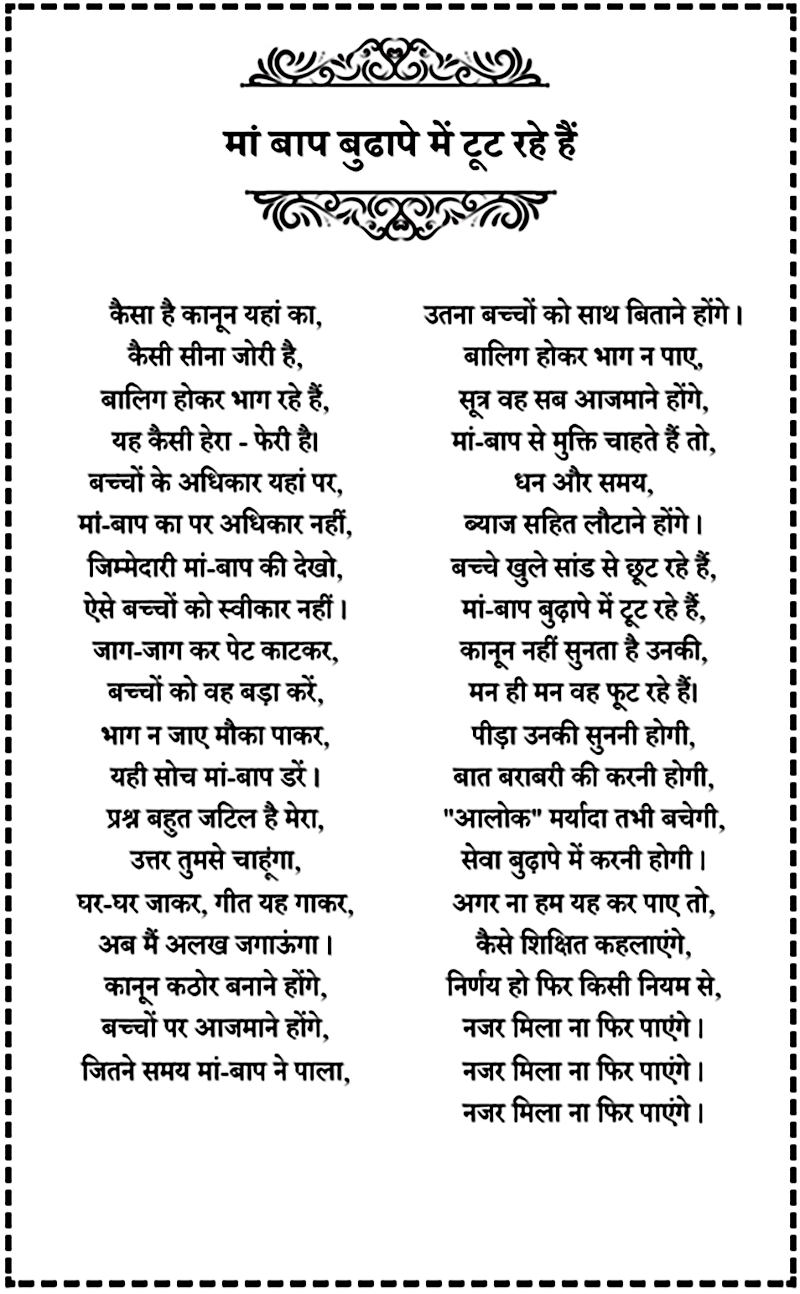 मां बाप बुढापे में टूट रहे हैं
कैसा है कानून यहां का,
कैसी सीना जोरी है,
बालिग होकर भाग रहे हैं,
यह कैसी हेरा - फेरी है।
बच्चों के अधिकार यहां पर,
मां-बाप का पर अधिकार नहीं,
जिम्मेदारी मां-बाप की देखो,
ऐसे बच्चों को स्वीकार नहीं ।
जाग-जाग कर पेट काटकर,
बच्चों को वह बड़ा करें,
भाग न जाए मौका पाकर,
यही सोच मां-बाप डरें ।
प्रश्न बहुत जटिल है मेरा,
उत्तर तुमसे चाहूंगा,
घर-घर जाकर, गीत यह गाकर,
अब मैं अलख जगाऊंगा ।
कानून कठोर बनाने होंगे,
बच्चों पर आजमाने होंगे,
जितने समय मां-बाप ने पाला,
उतना बच्चों को साथ बिताने होंगे ।
बालिग होकर भाग न पाए,
सूत्र वह सब आजमाने होंगे,
मां-बाप से मुक्ति चाहते हैं तो,
धन और समय,
ब्याज सहित लौटाने होंगे ।
बच्चे खुले सांड से छूट रहे हैं,
मां-बाप बुढ़ापे में टूट रहे हैं,
कानून नहीं सुनता है उनकी,
मन ही मन वह फूट रहे हैं।
पीड़ा उनकी सुननी होगी,
बात बराबरी की करनी होगी,
"आलोक" मर्यादा तभी बचेगी,
सेवा बुढ़ापे में करनी होगी ।
अगर ना हम यह कर पाए तो,
कैसे शिक्षित कहलाएंगे,
निर्णय हो फिर किसी नियम से,
नजर मिला ना फिर पाएंगे ।
नजर मिला ना फिर पाएंगे ।
नजर मिला ना फिर पाएंगे ।